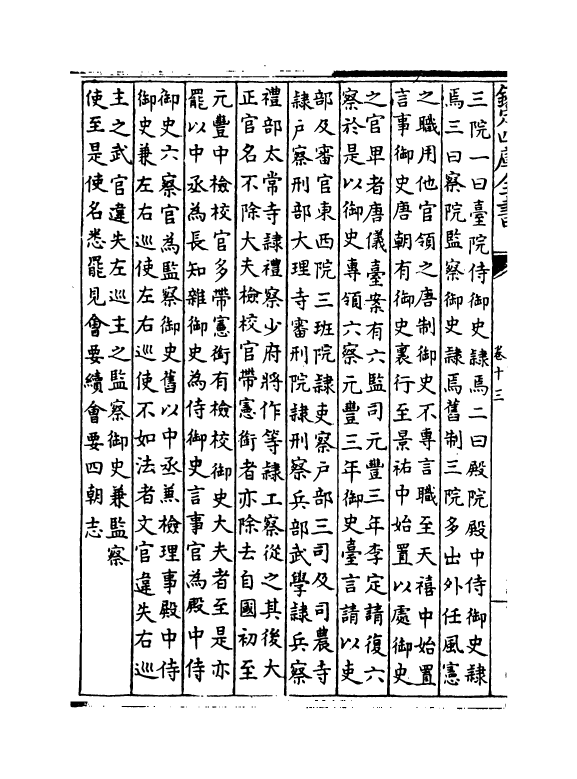 欽定四庫全書
卷十三
三院一曰臺院侍御史隸焉二曰殿院殿中侍御史隸
焉三曰察院監察御史隸焉舊制三院多出外任風憲
之職用他官領之唐制御史不專言職至天禧中始置
言事御史唐朝有御史裏行至景祐中始置以處御史
之官卑者唐儀臺案有六監司元豐三年李定請復六
察於是以御史專領六察元豐三年御史臺言請以吏
部及審官東西院三班院隸吏察户部三司及司農寺
隸户察刑部大理寺審刑院隸刑察兵部武學隸兵察
禮部太常寺隸禮察少府將作等隸工察從之其後大
正官名不除大夫檢校官帶憲銜者亦除去自國初至
元豐中檢校官多帶憲銜有檢校御史大夫者至是亦
罷以中丞為長知雜御史為侍御史言事官為殿中侍
御史六察官為監察御史舊以中丞兼檢理事殿中侍
御史兼左右巡使左右巡使不如法者文官違失右巡
主之武官違失左巡主之監察御史兼監察
使至是使名悉罷見會要續會要四朝志